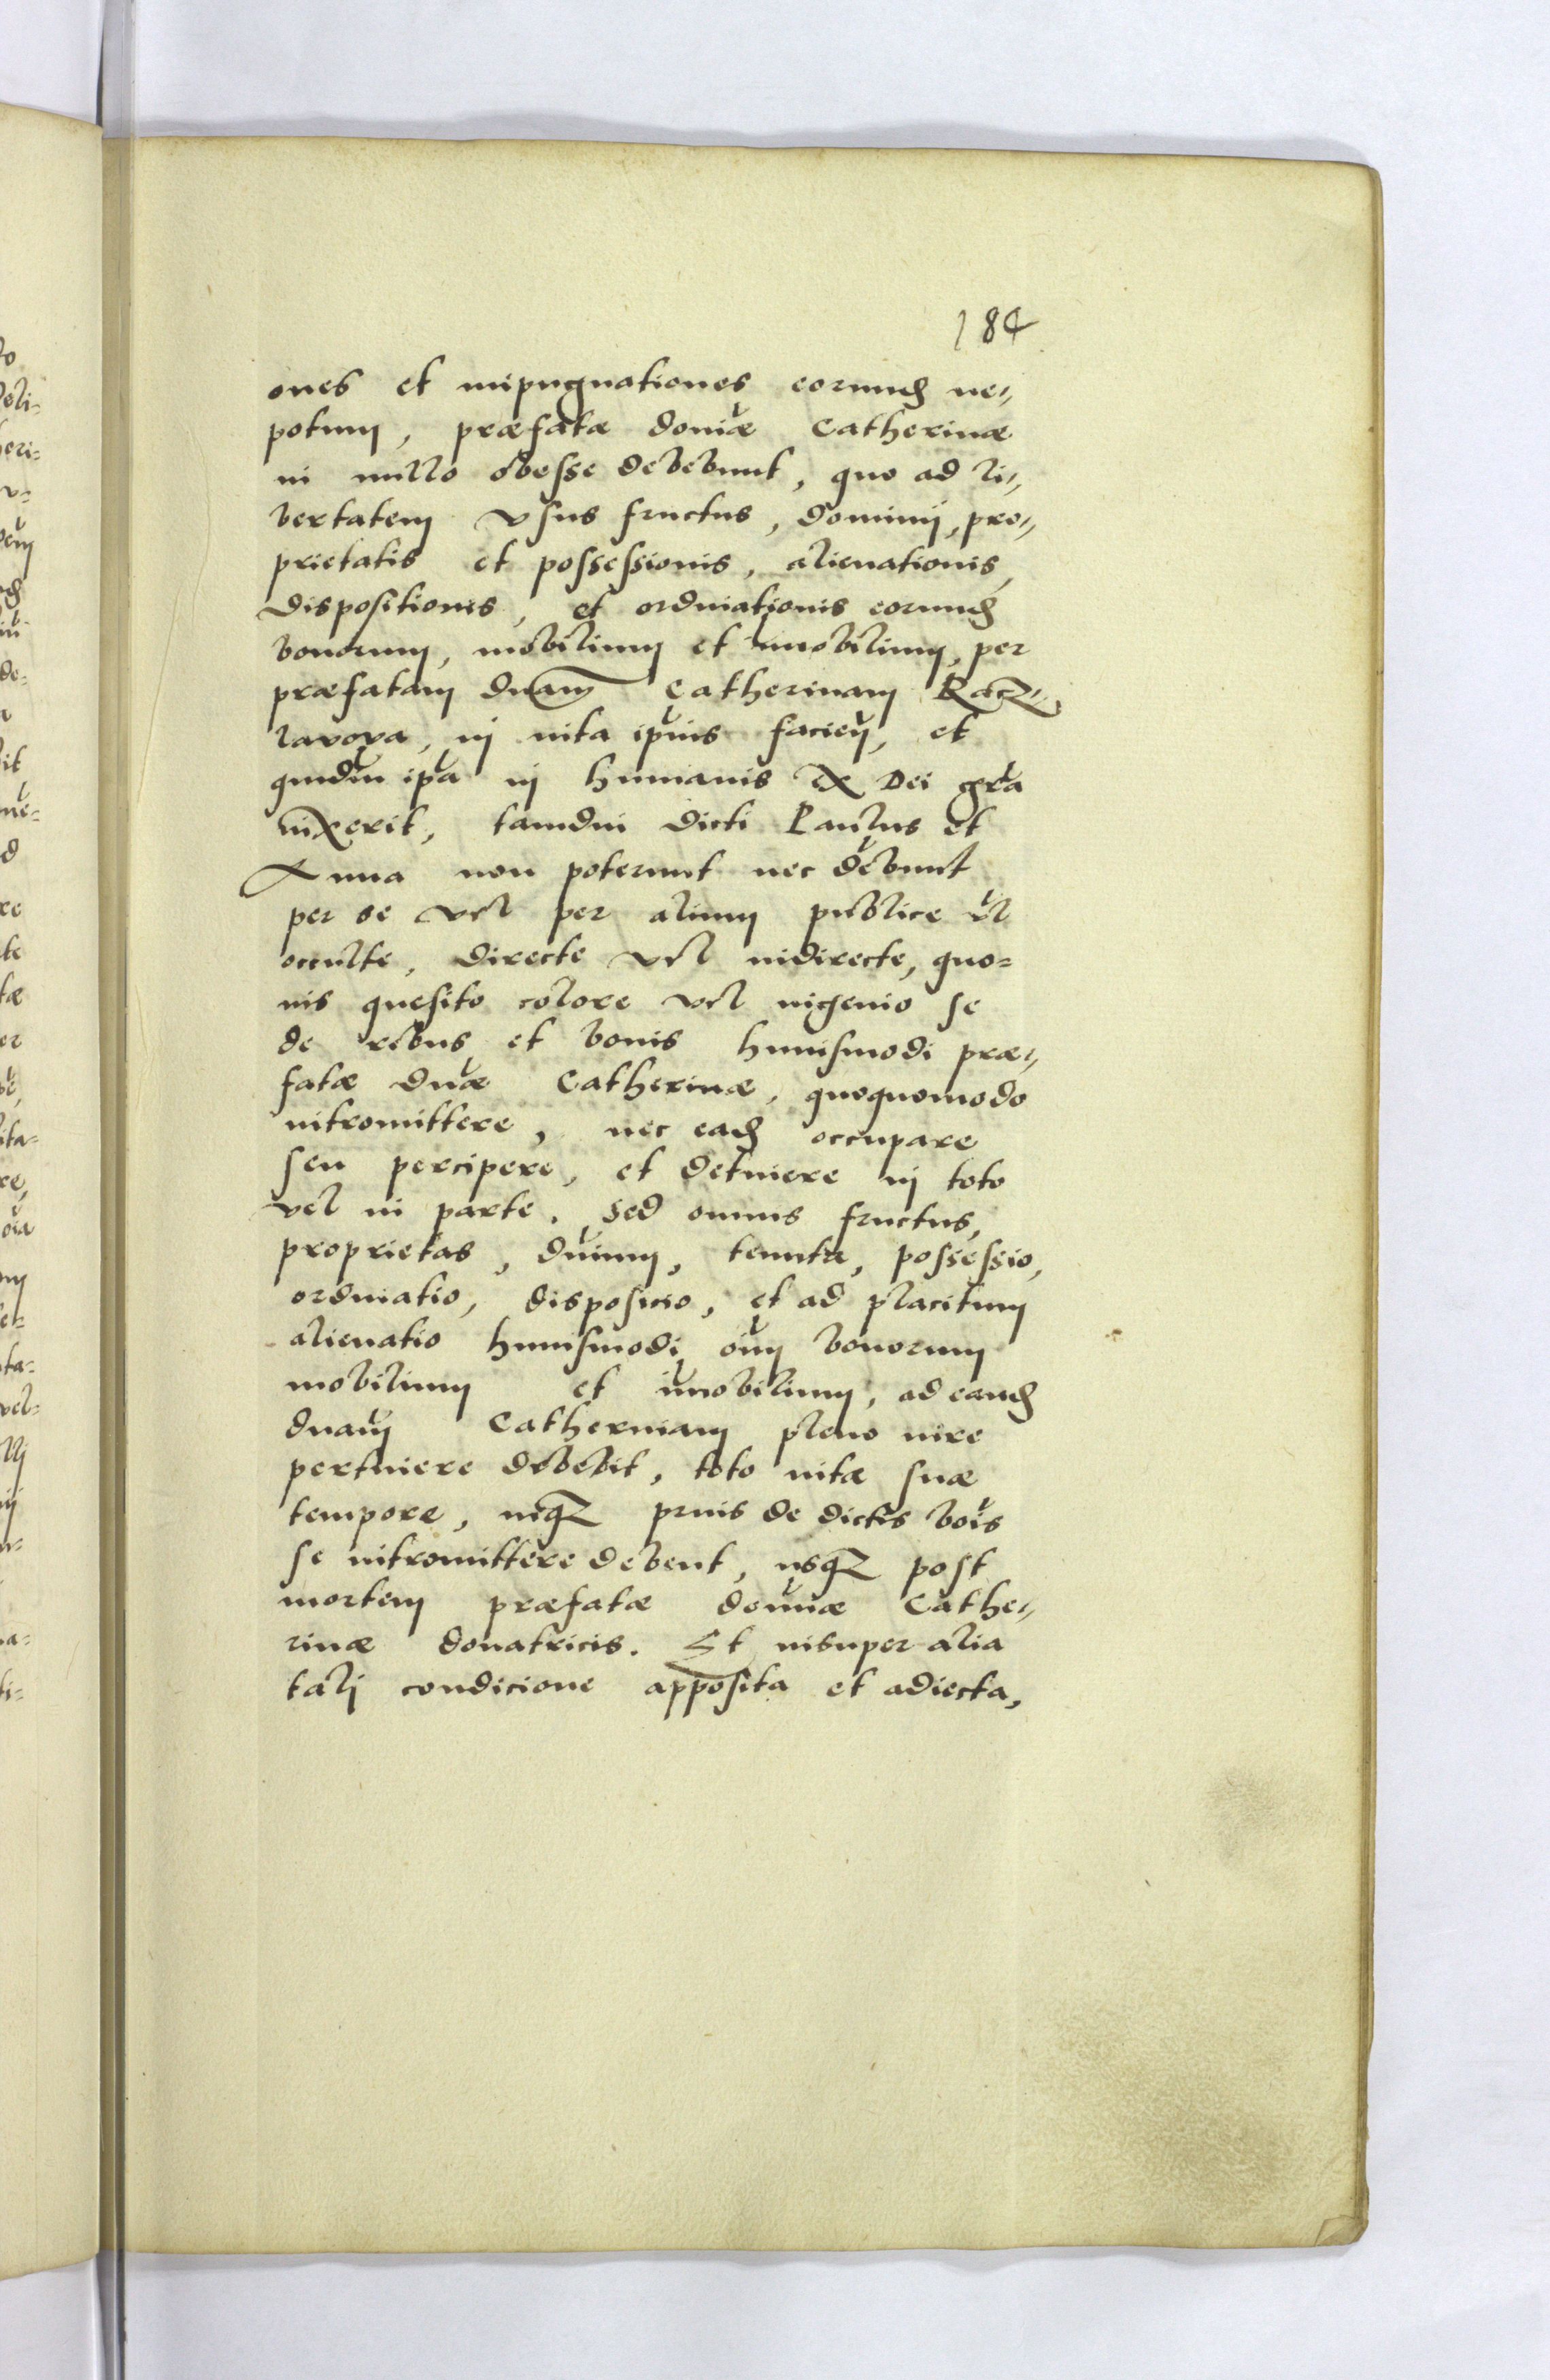 184
ones et impugnationes eorund ne-
potum, præfatæ domæ Catherinæ
in nullo obesse debebunt, quo ad li-
bertatem usus fructus, dominij, pro-
prietatis et possessionis, alienationis,
dispositionis, et ordinationis eorund
bonorum, mobilium et imobilium, per
præfatam dnam Catherinam Racz-
lavova, in vita ipius faciem, et
quudiu ipa in humanis ex Dei gra
vixerit, tamdiu dicti Paulus et
Anna non poterunt nec debunt
per se vel per alium publice vl
occulte, directe vel indirecte, quo-
vis quesito colore vel ingenio se
de rebus et bonis huiusmodi præ-
fatæ dnæ Catherinæ, quoquomodo
intromittere, nec ead occupare
seu percipere, et detinere in toto
vel in parte. Sed omnis fructus,
proprietas, dnium, tenuta, possessio,
ordinatio, disposicio, et ad placitum
alienatio huiusmodi oium bonorum
mobilium et imobilium, ad eand
dnam Catherinam pleno iure
pertinere debebit, toto vitæ suæ
tempore, neqз prius de dictis bois
se intromittere debent, usqз post
mortem præfatæ domnæ Cathe-
rinæ donatricis. Et insuper alia
talj condicione apposita et adiecta,